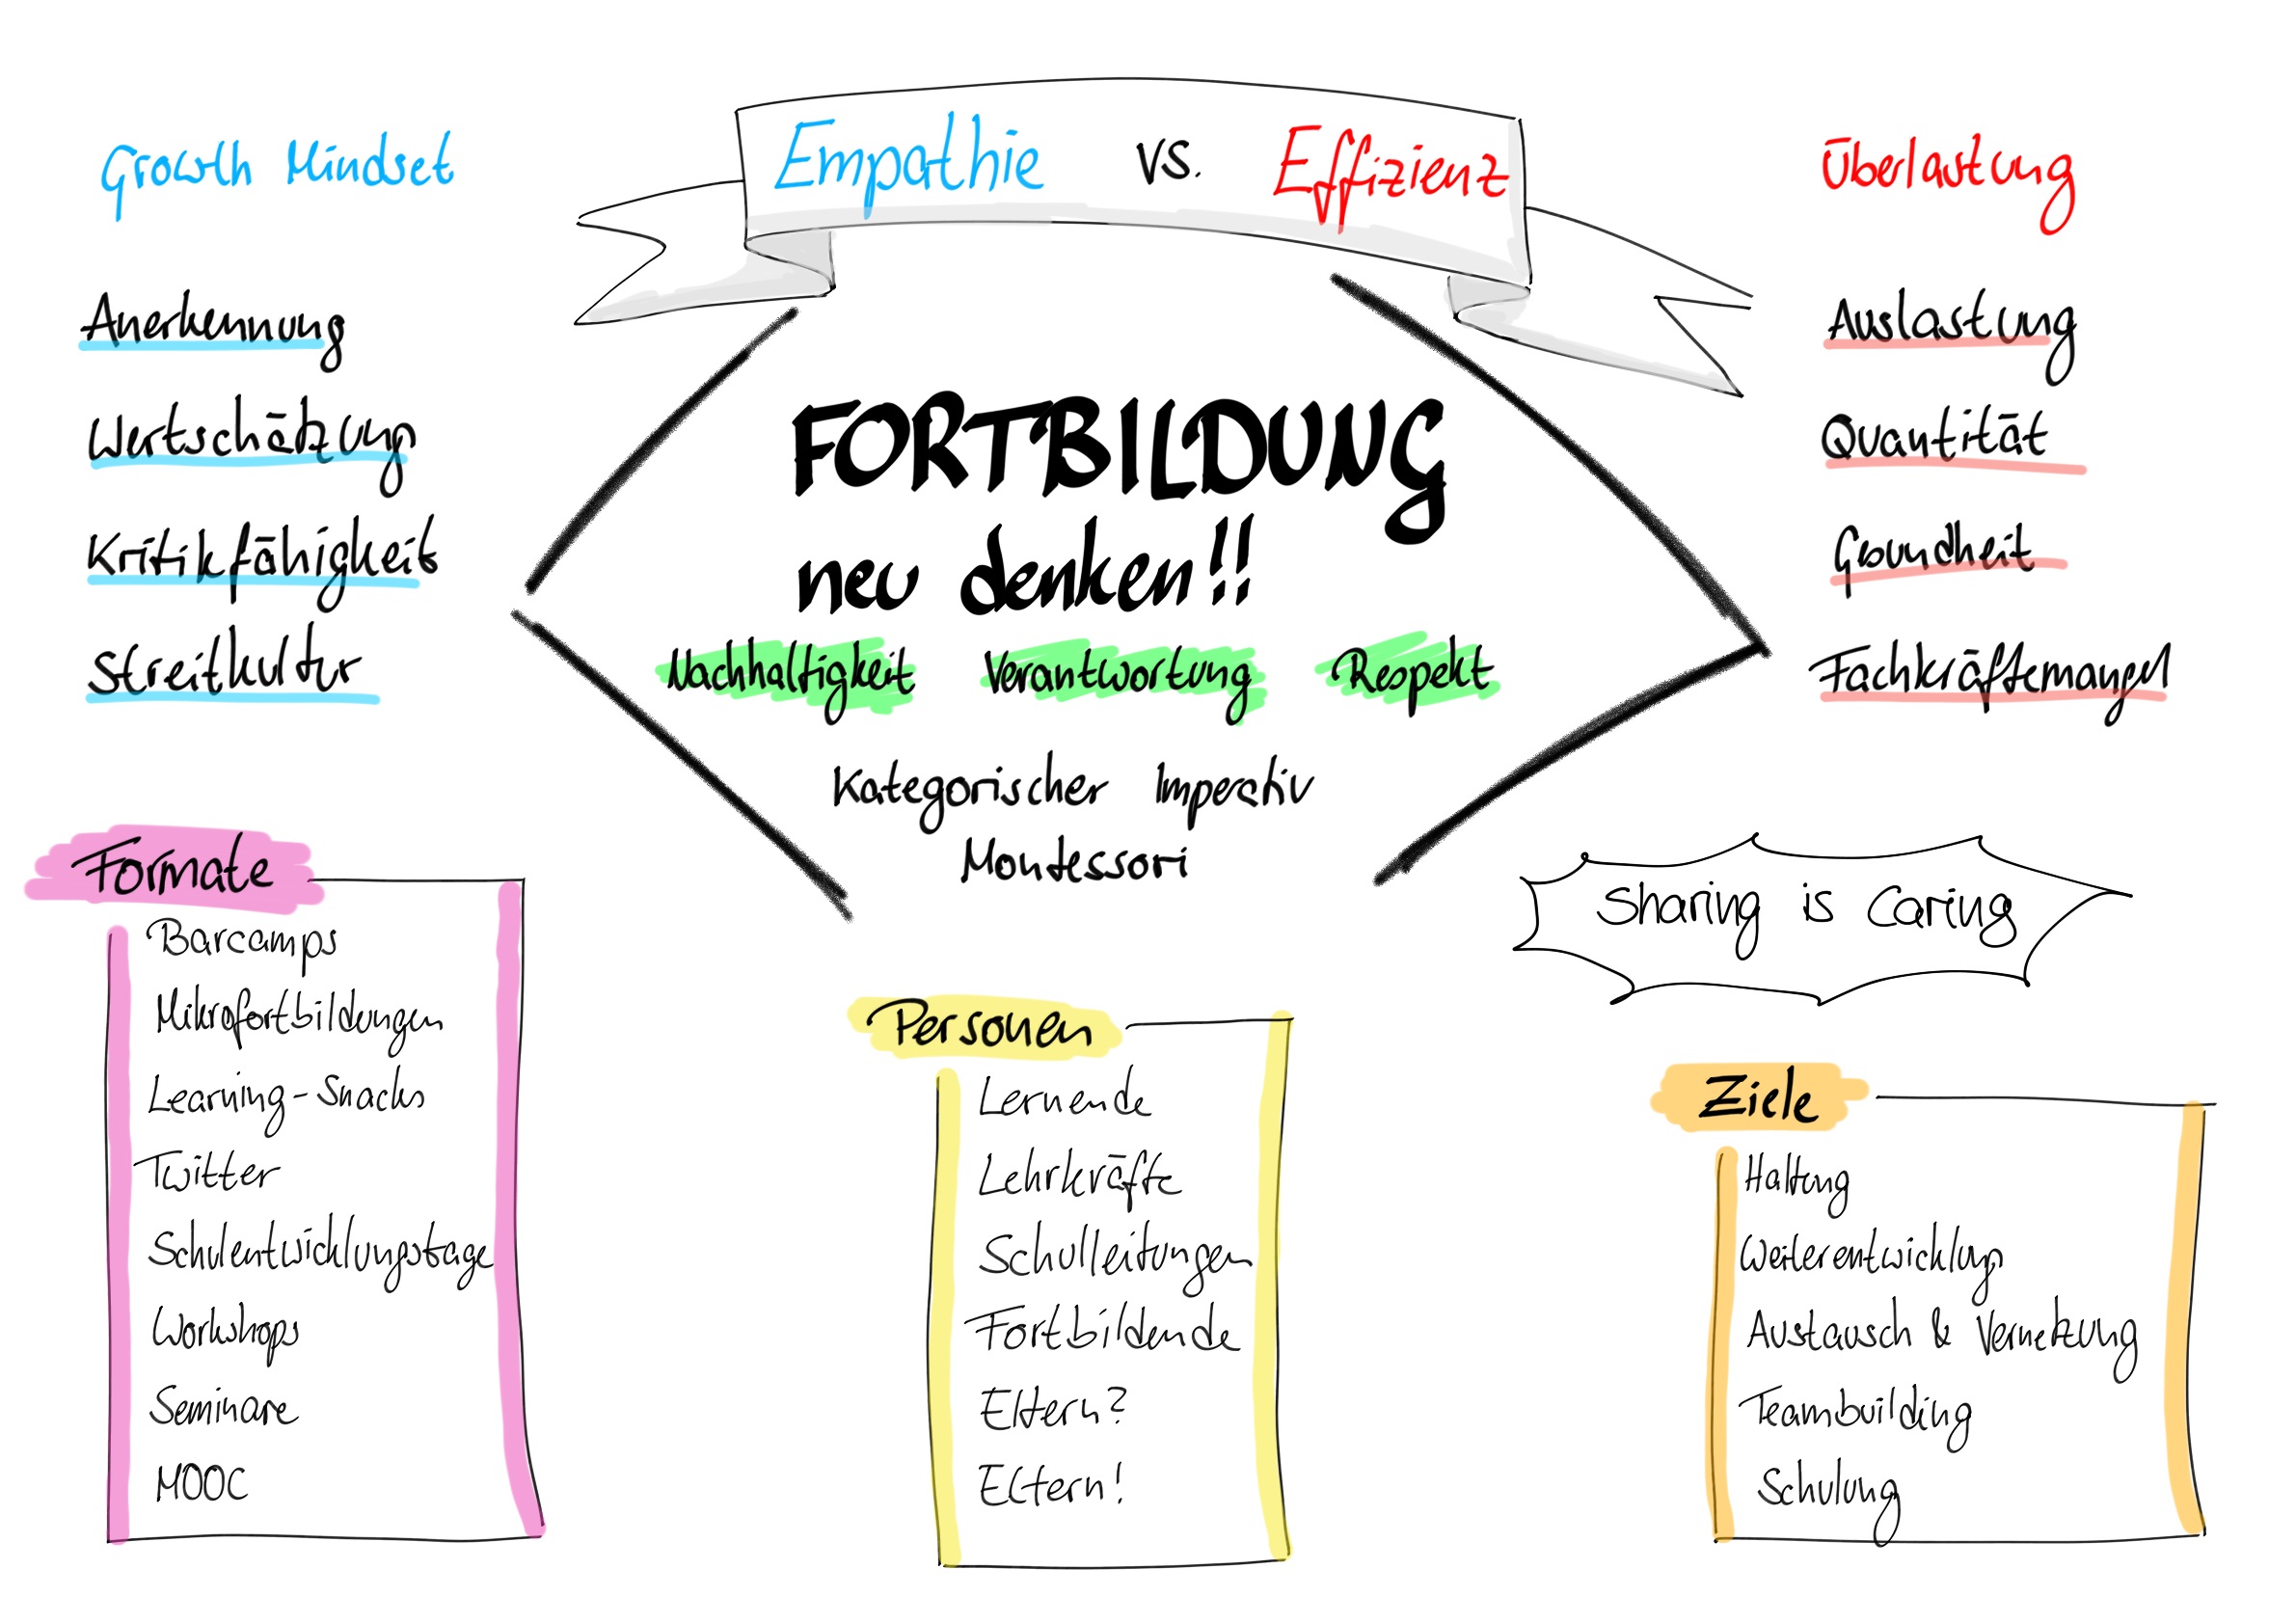 Growth Mindset
Anerkennung
Wertschätzung
Kritikfähigkeit
Streitkultur
Empathie vs. Effizienz
Überlastung
Auslastung
Quantität
Gesundheit
Fachkräftemangel
FORTBILDUNG
neu denken!!
Nachhaltigkeit Verantwortung Respekt
Kategorischer Imperativ
Montessori
Sharing is Caring
Formate
Barcamps
Mikrofortbildungen
Learning-Snacks
Twitter
Schulentwicklungstage
Workshops
Seminare
MOOC
Personen
Lernende
Lehrkräfte
Schulleitungen
Fortbildende
Eltern?
Eltern!
Ziele
Haltung
Weiterentwicklung
Austausch & Vernetzung
Teambuilding
Schulung